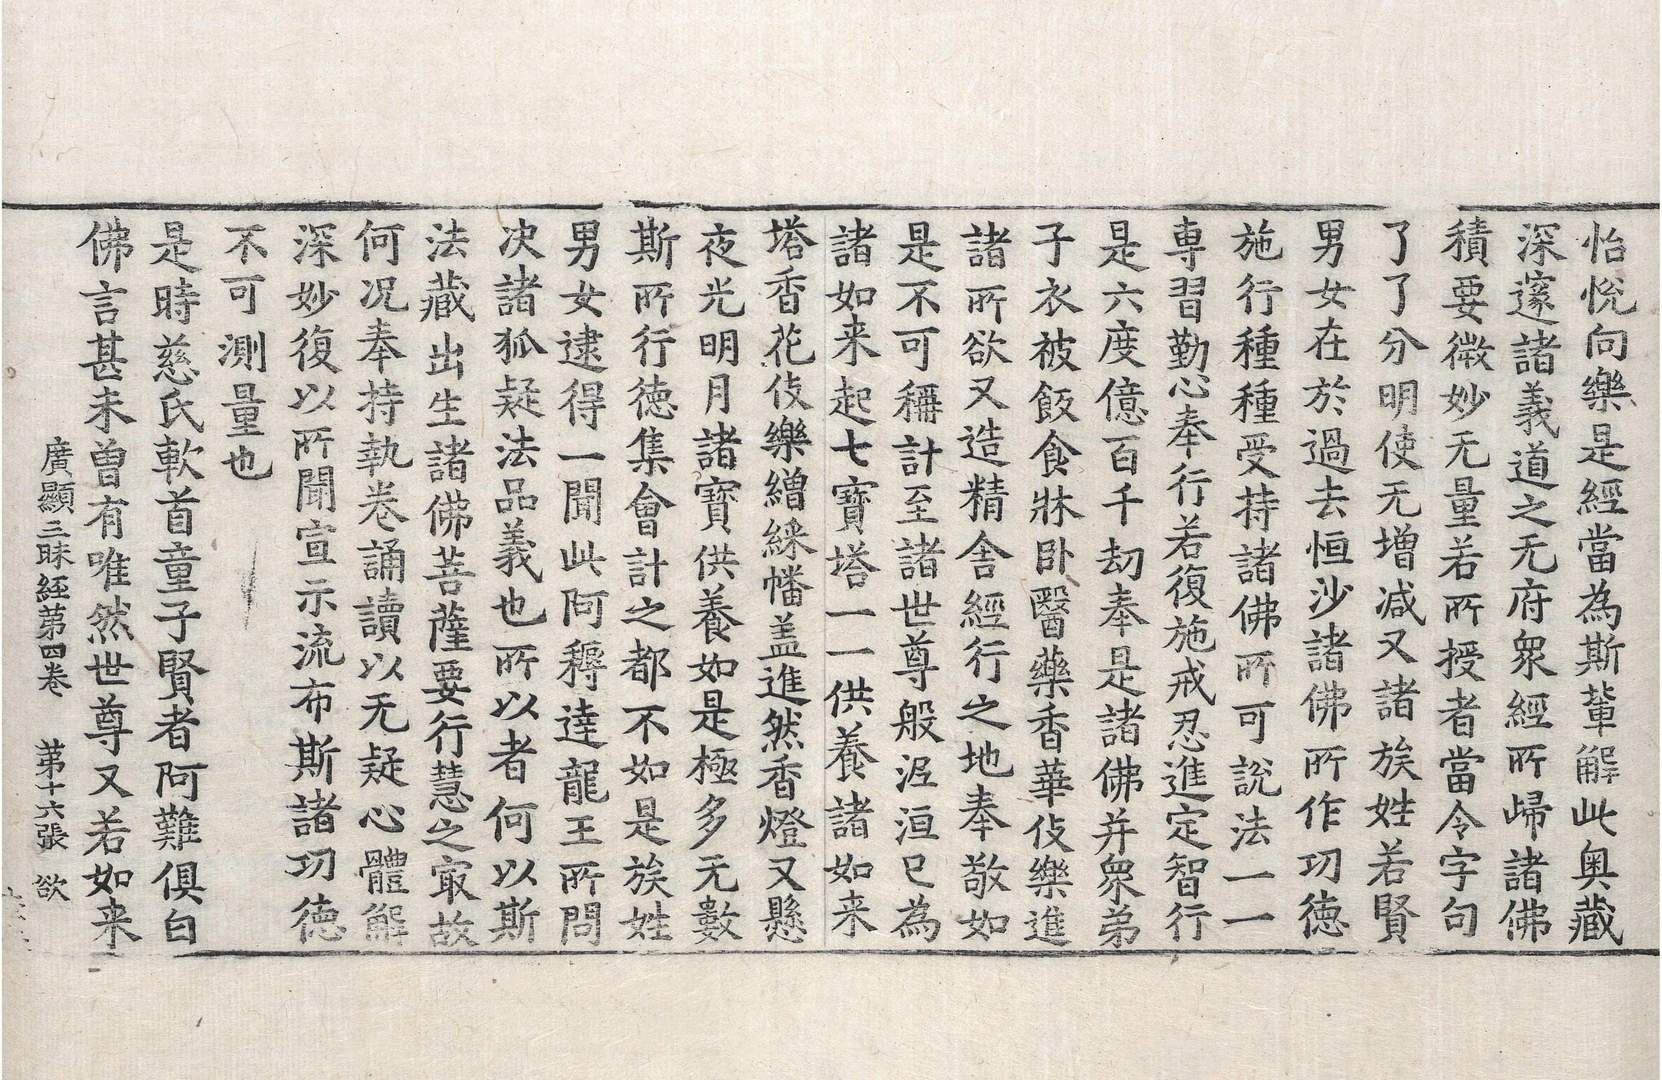 怡悅向樂是經當為斯輩解此奧藏
深邃諸義道之无府衆經所歸諸佛
積要微妙无量若所授者當令字句
了了分明使无增減又諸族姓若賢
男女在於過去恒沙諸佛所作㓛徳
施行種種受持諸佛所可說法一一
専習勤心奉行若復施戒忍進定智行
是六度億百千劫奉是諸佛并衆弟
子衣被飯食牀卧醫藥香華伎樂進
諸所欲又造精舍經行之地奉敬如
是不可稱計至諸世尊般泥洹已為
諸如来起七寶塔一一供養諸如来
塔香花伎樂繒綵幡盖進然香燈又懸
夜光明月諸寶供養如是極多无數
斯所行徳集會計之都不如是族姓
男女逮得一聞此阿耨達龍王所問
决諸狐疑法品義也所以者何以斯
法藏出生諸佛菩薩要行慧之㝡故
何况奉持執卷誦讀以无疑心體解
深妙復以所聞宣示流布斯諸㓛徳
不可測量也
是時慈氏軟首童子賢者阿難俱白
佛言甚未曾有唯然世尊又若如来
廣顯三昧經第四卷　第十六張　欲